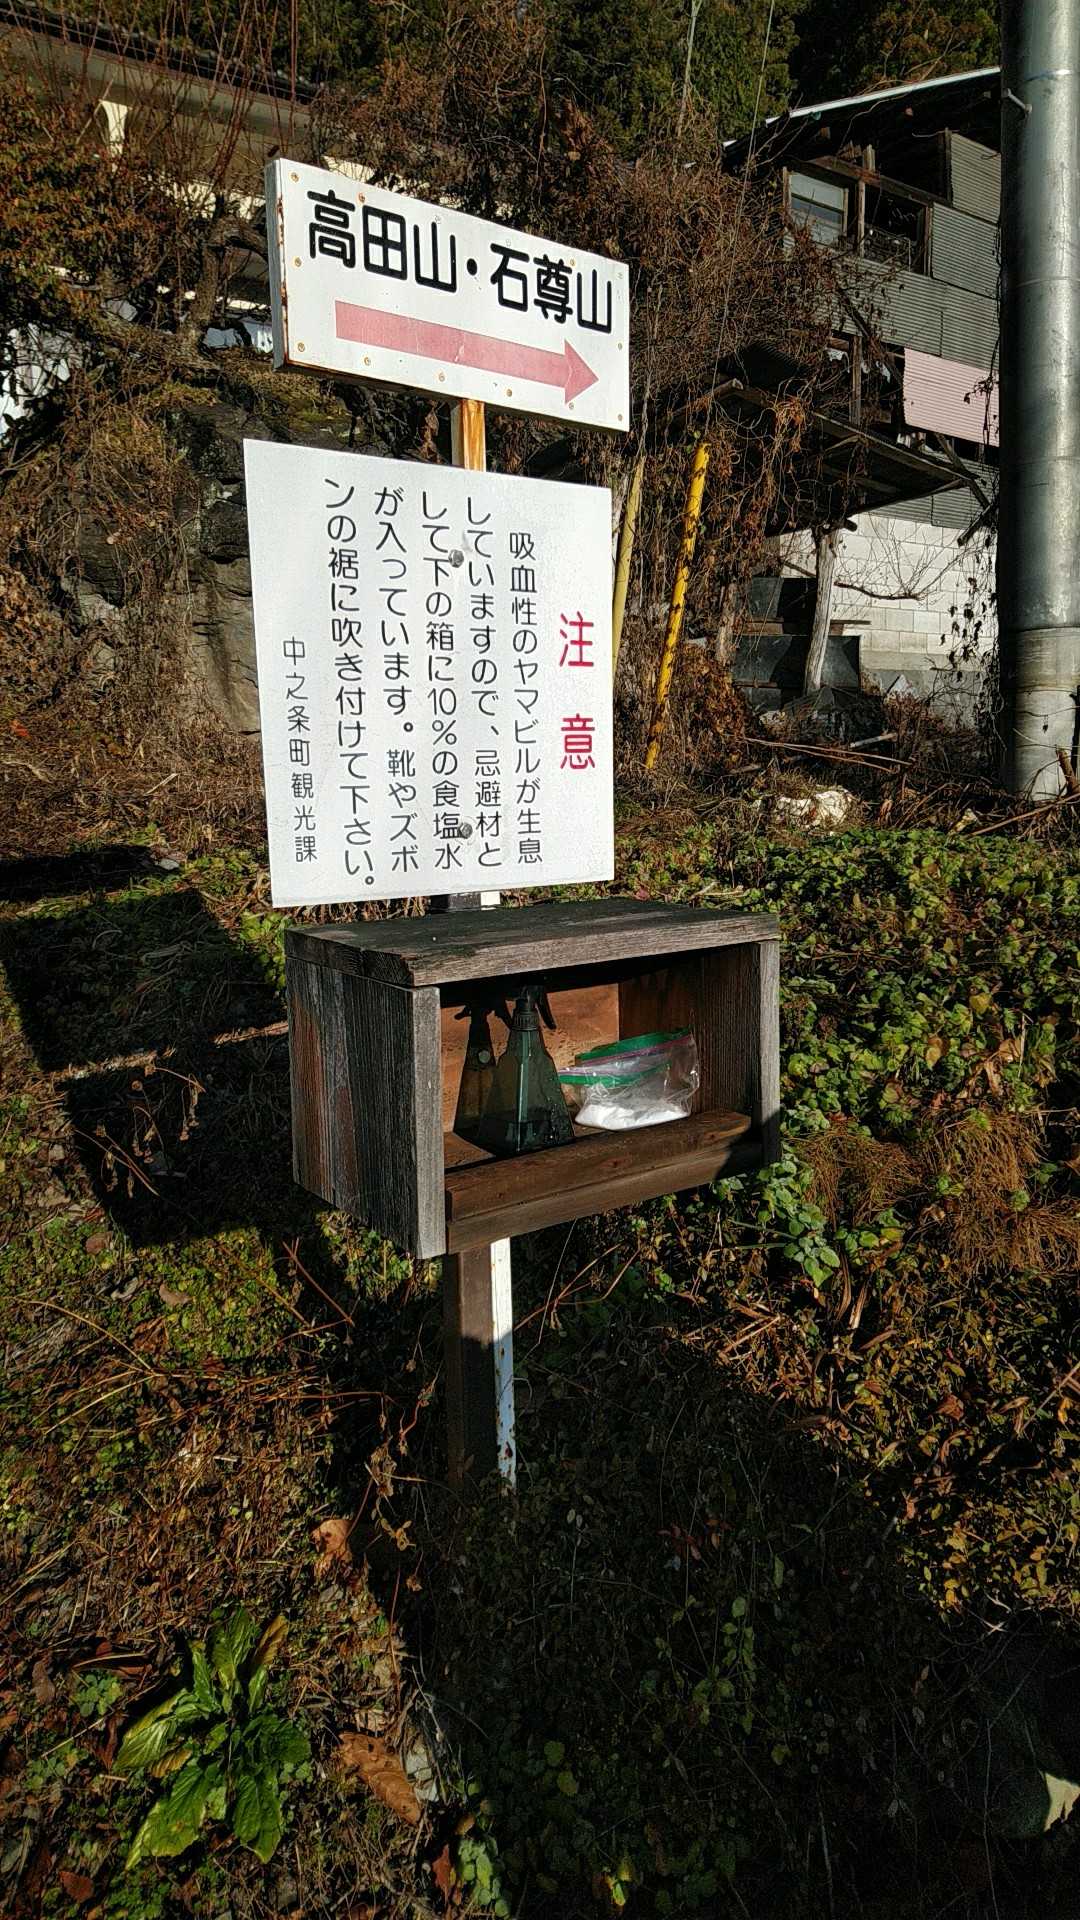 高田山・石尊山
注意
吸血性のヤマビルが生息
していますので、忌避材と
して下の箱に10%の食塩水
が入っています。靴やズボ
ンの裾に吹き付けて下さい。
中之条町観光課